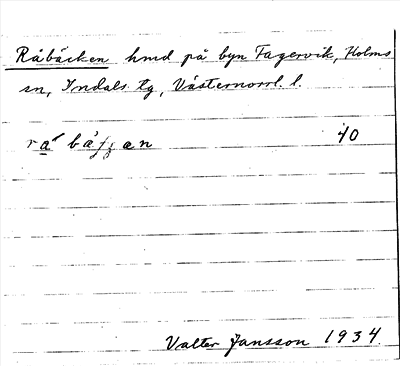 Råbäcken hmd på byn Fagervik, Holms
sn, Indals tg, Västernorrl. l.
40
Valter Jansson 1934